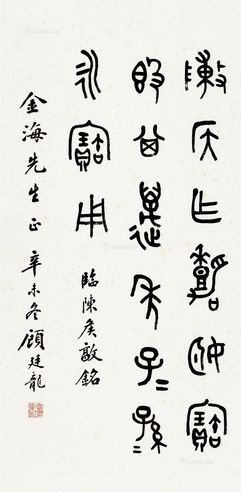 敶侯乍嘉姬寶
𣪘其萬年子=孫=
永寶用 臨陳侯敦銘
金海先生正 辛未冬顧廷龍